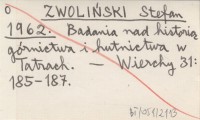 0 ZWOLIŃSKI Stefan
1962. Badania nad historią
górnictwa i hutnictwa w
Tatrach. — Wierchy 31:
185-187.